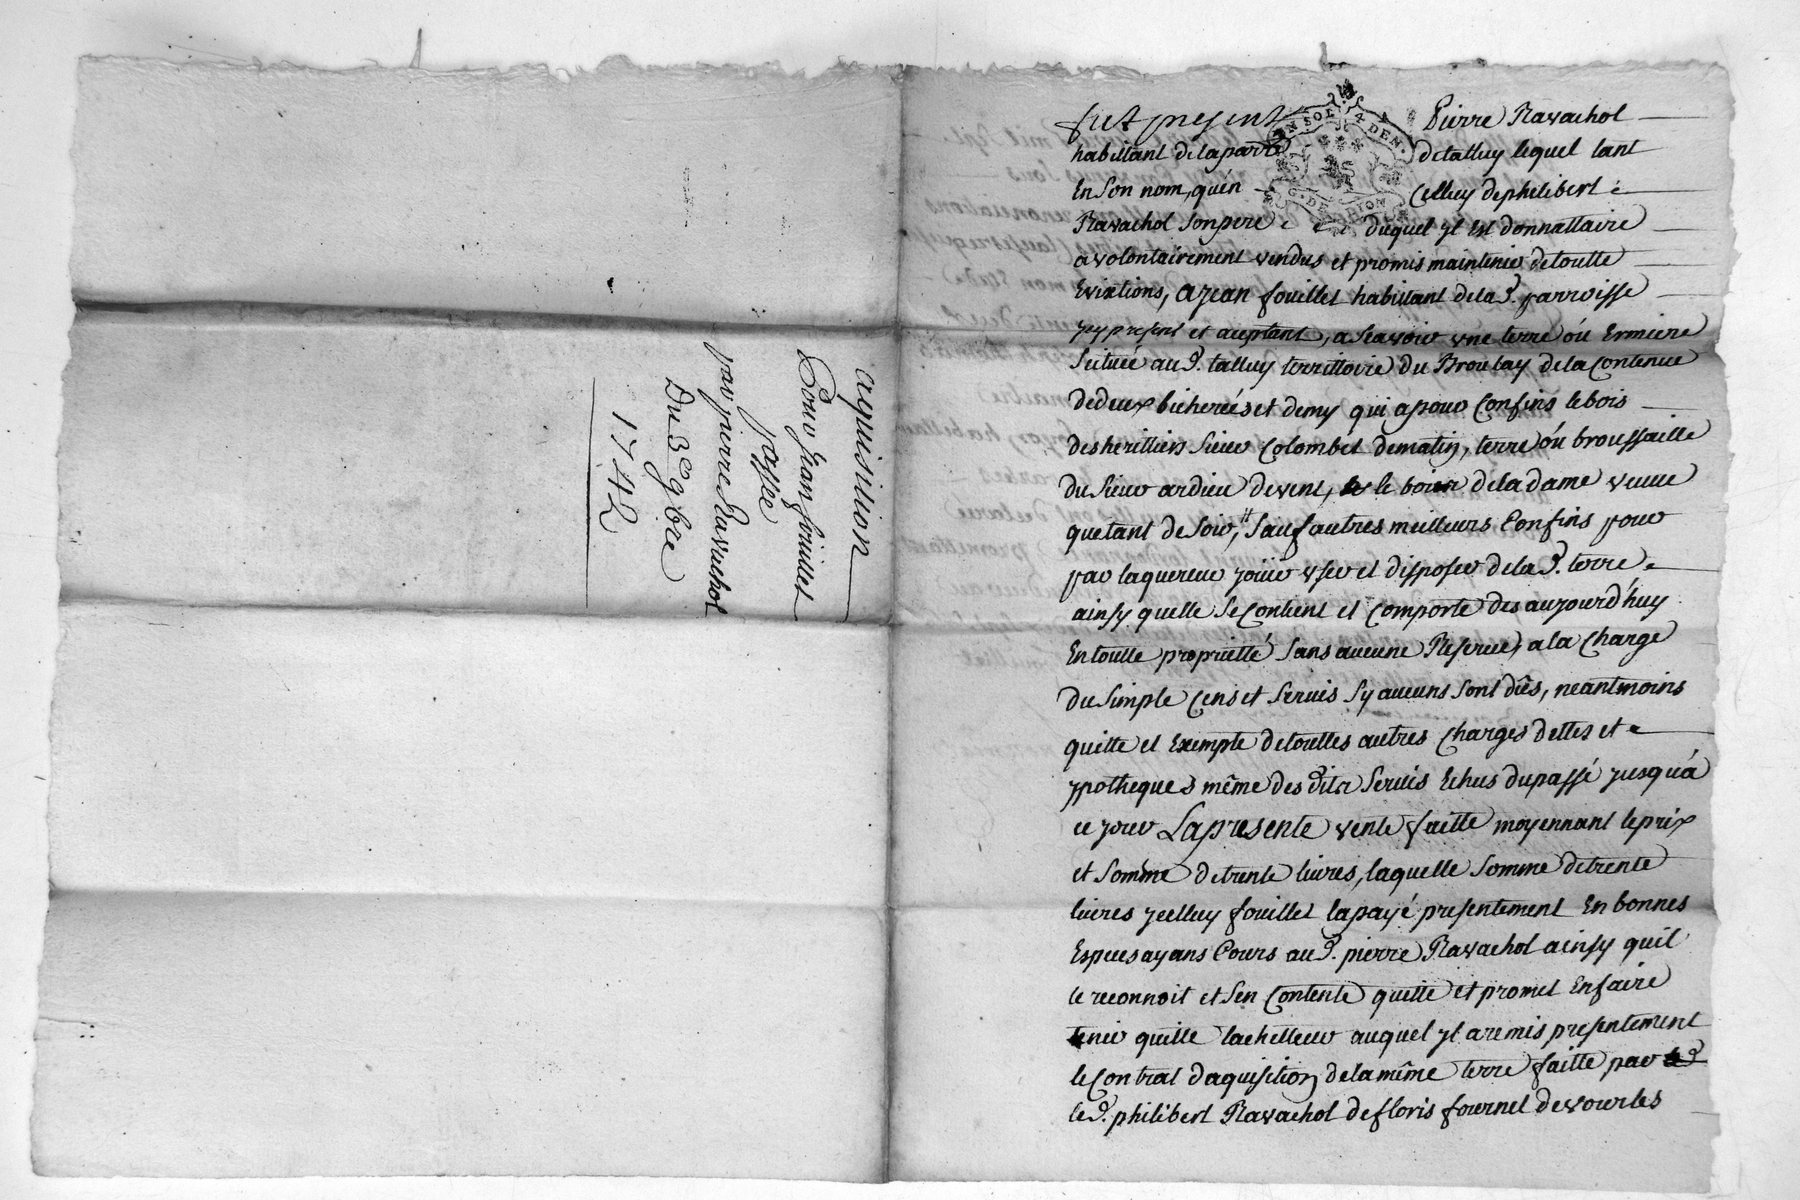 aquisition
Pour Jean fouillet
passée
par pierre Ravachol
Du 3e 9bre
1742
fut present Pierre Ravachol
UN SOL 4 DEN.
G. DE LION
habittant de la parre de talluy lequel tant
En Son nom, qu'en Celluy de philibert
Ravachol Son pere duquel yl Est donnattaire
a volontairement vendus et promis maintenir de toutte
Evixtions, a Jean fouillet habittant de la d. parroisse
ycy present et aceptant, a Scavoir une terre ôu Ermiere
Scituée au d. talluy territtoire du Broulay de la Contenue
de deux bicherées et demy qui a pour Confins le bois
des herittiers Sieur Colombet de matin, terre ôu broussaille
du Sieur ardieu de vent, le bois de la dame veuve
quetant de Soir, Sauf autres meilleurs Confins pour
par laquereur joüir user et disposer de la d. terre
ainsy quelle Se Contient et Comporte des aujourd'huy
En toutte proprietté Sans aucune Reserve, a la Charge
du Simple Cens et Servis Sy aucuns Sont dûs, neantmoins
quitte et Exempte de touttes autres Charges dettes et
ypotheques même des dits Servis Echus du passé jusqu'a
ce jour La presente vente faitte moyennant le prix
et Somme de trente livres, laquelle Somme de trente
livres ycelluy fouillet la payé presentement En bonnes
Especes ayans Cours au d. pierre Ravachol ainsy quil
le reconnoit et Sen Contente quitte et promet En faire
tenir quitte lachetteur auquel yl a remis presentement
le Contrat daquisition de la même terre faitte par
le d. philibert Ravachol de floris fournel de vourles